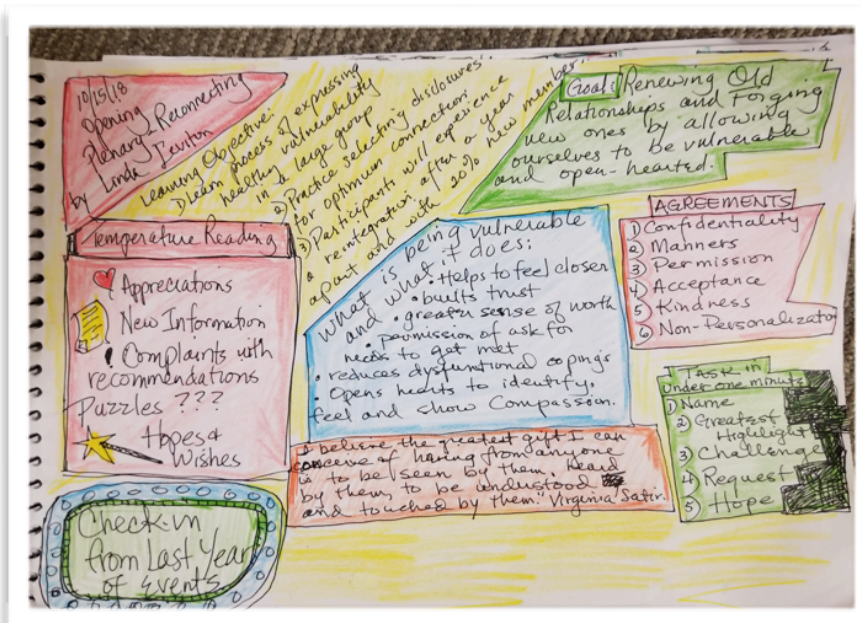 10/15/18
Opening
Plenary-Reconnecting
by Linda Leviton
Learning Objective:
1) Learn process of expressing
healthy vulnerability
in a large group
2) Practice selecting disclosures
for optimum connection.
3) Participants will experience
a reintegration after a year
apart and with 20% new member.
Goal: Renewing Old
Relationships and Forging
new ones by allowing
ourselves to be vulnerable
and open-hearted.
Temperature Reading
Appreciations
New Information
! Complaints with
recommendations
Puzzles ???
Hopes &
Wishes
What is being vulnerable
and what it does:
• Helps to feel closer
• builts trust
• greater sense of worth
• permission of ask for
needs to get met
• reduces dysfunctional copings
• Opens hearts to identify,
feel and show Compassion.
AGREEMENTS
1) Confidentiality
2) Manners
3) Permission
4) Acceptance
5) Kindness
6) Non-Personalizator
TASK in
under one minute
1) Name
2) Greatest
Highlight
3) Challenge
4) Request
5) Hope
I believe the greatest gift I can
conceive of having from anyone
is to be seen by them, heard
by them, to be understood
and touched by them." Virginia Satir.
Check-in
from Last Year
of Events